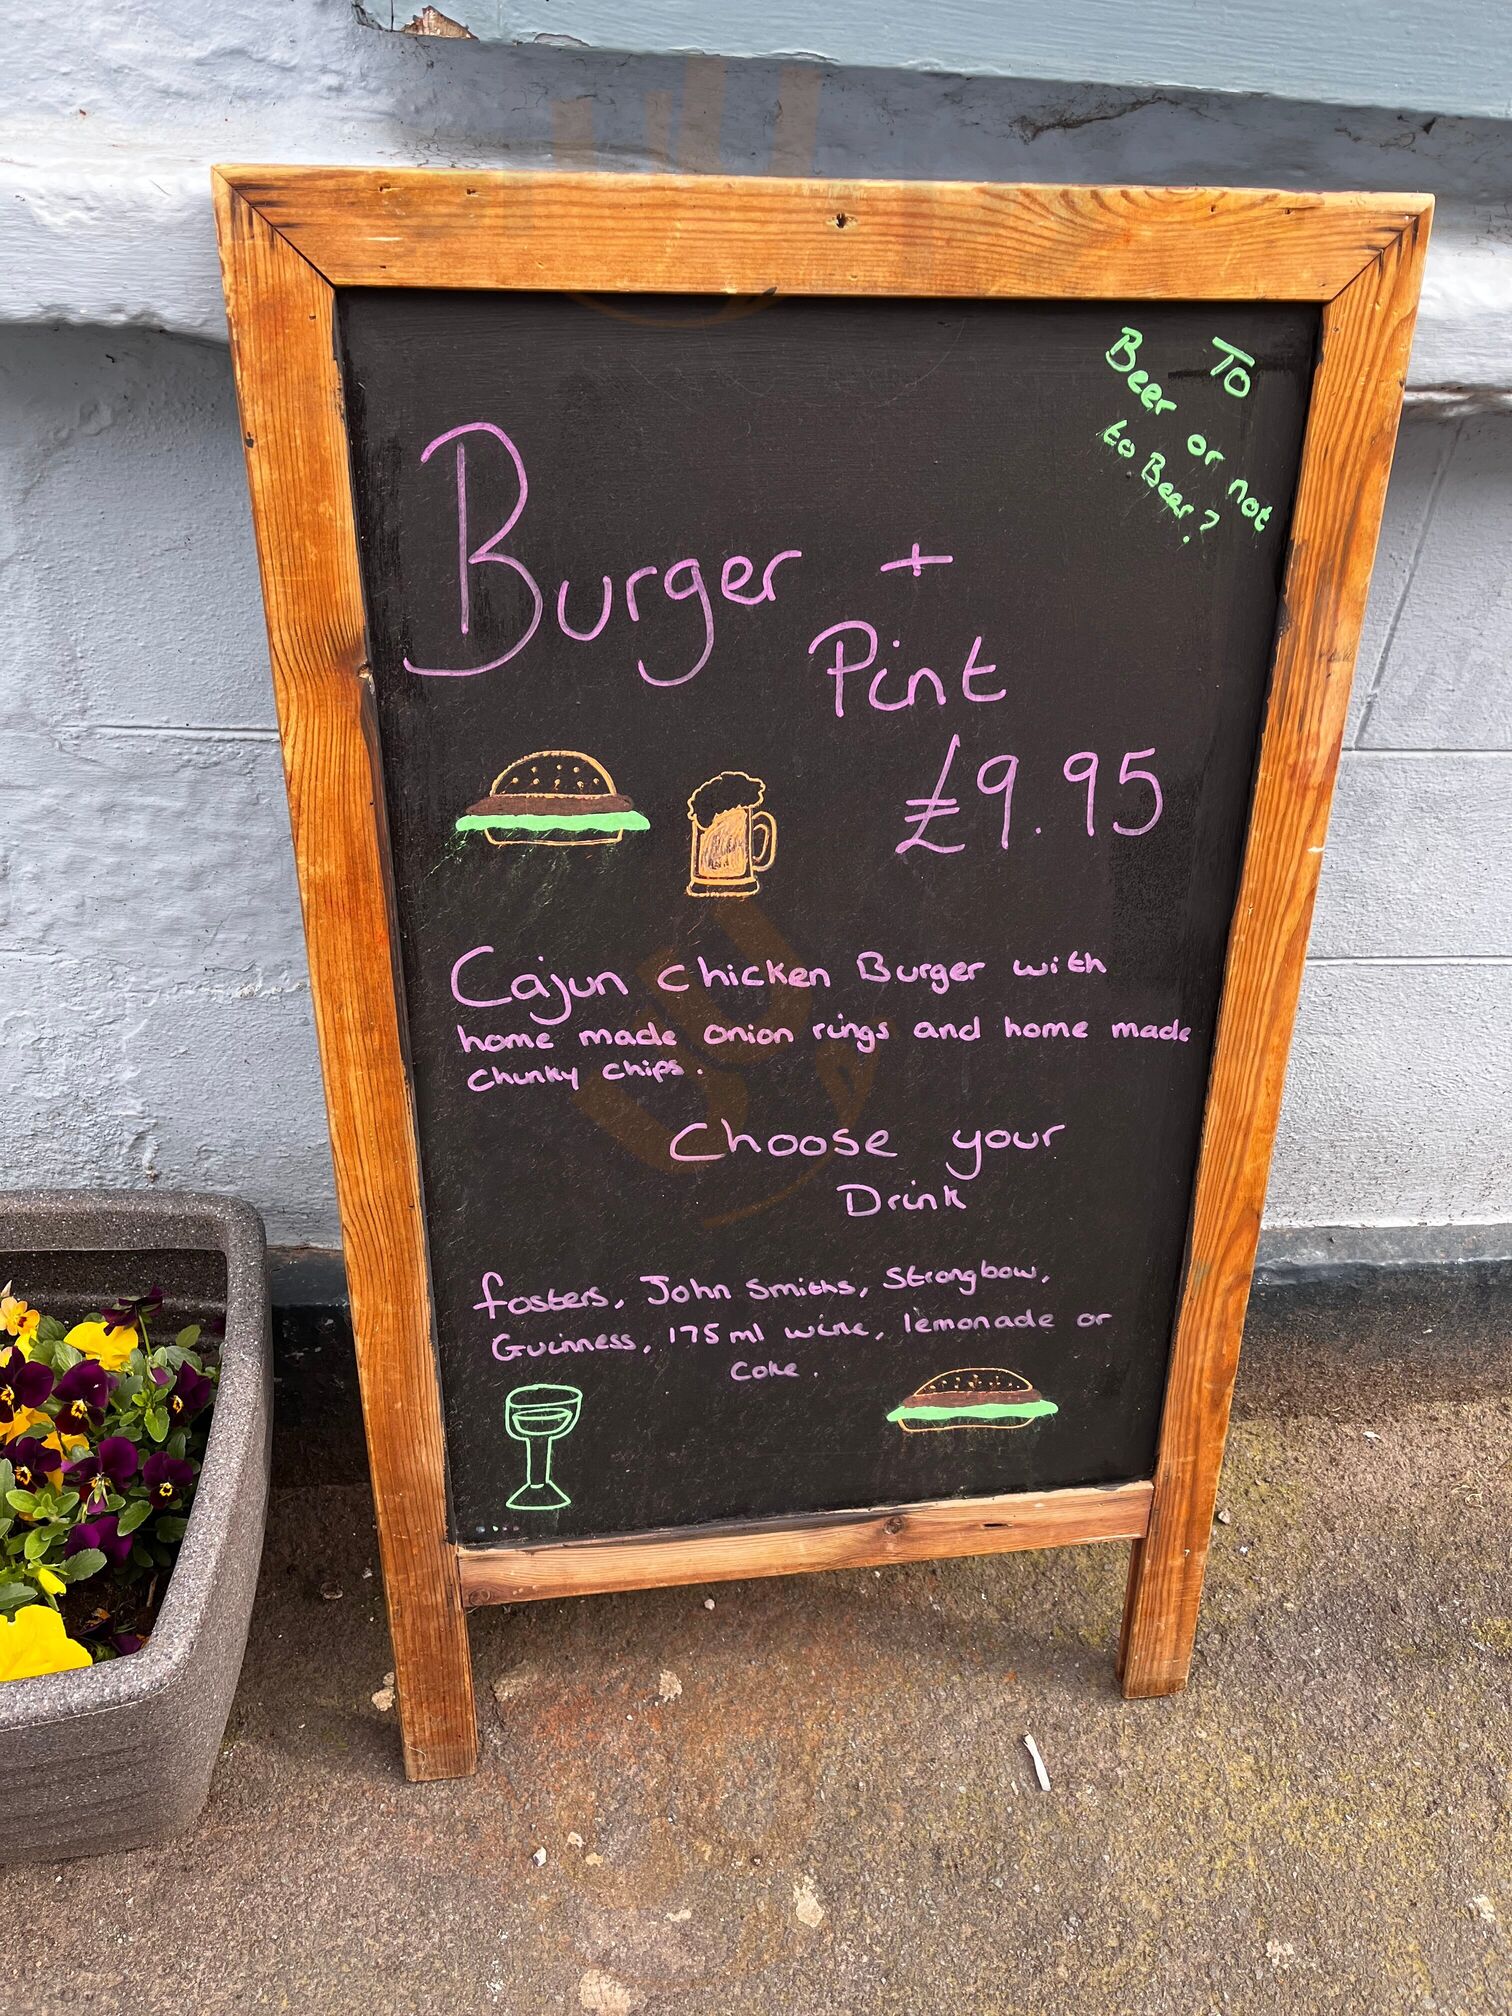 To
Beer or not
to Beer?
Burger +
Pint
£9.95
Cajun chicken Burger with
home made onion rings and home made
Chunky chips.
Choose your
Drink
fosters, John Smiths, Strongbow,
Guinness, 175ml wine, lemonade or
Coke.